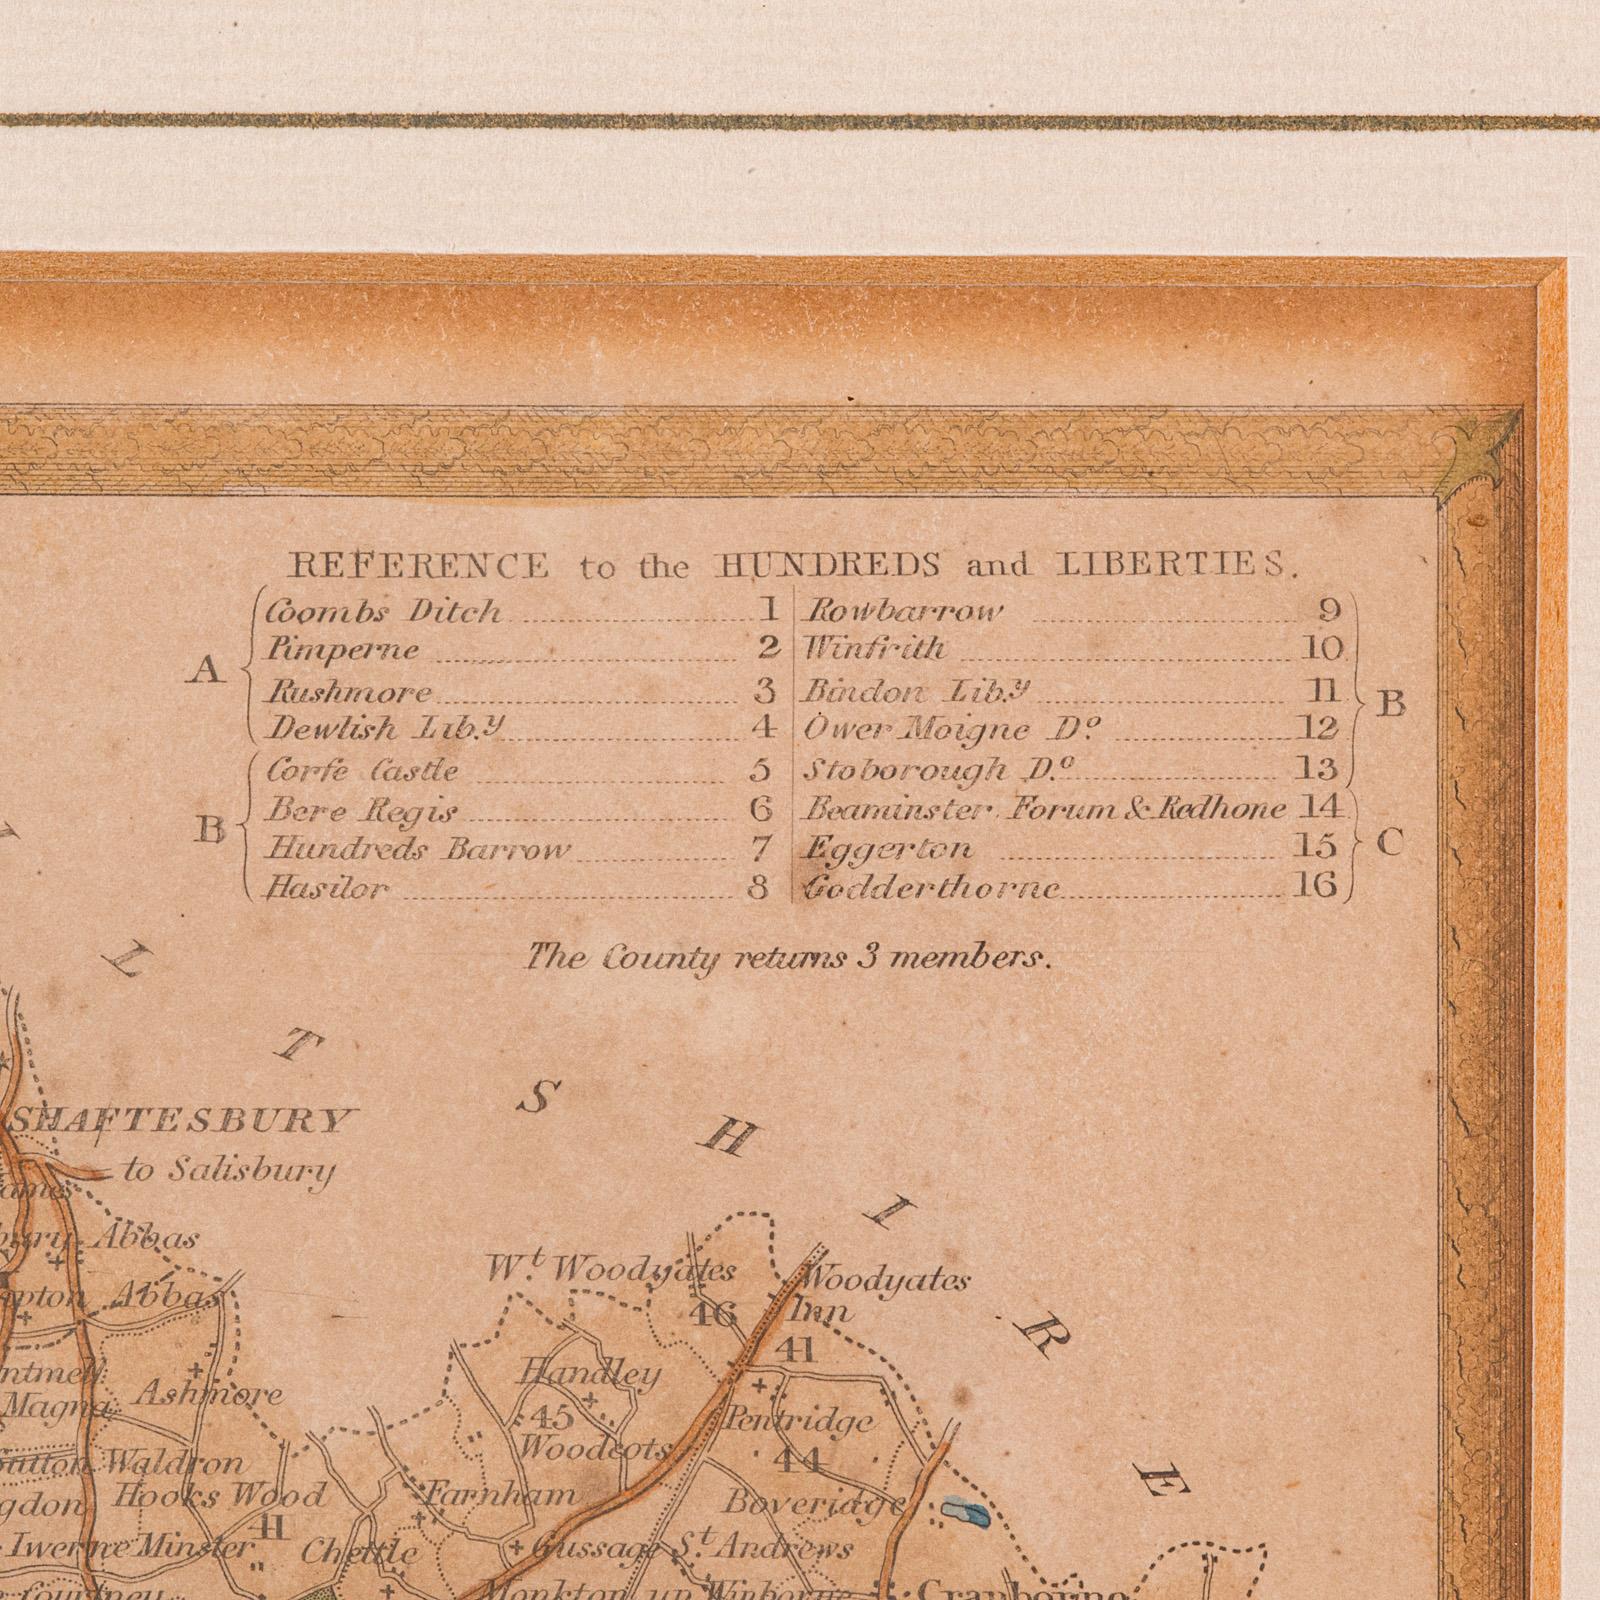 REFERENCE to the HUNDREDS and LIBERTIES.
A
Coombs Ditch 1
Pimperne 2
Rushmore 3
Dewlish Lib.y 4
B
Corfe Castle 5
Bere Regis 6
Hundreds Barrow 7
Hasilor 8
Rowbarrow 9
Winfrith 10
Bindon Lib.y 11
Ower Moigne D.o 12
Stoborough D.o 13
B
Beaminster Forum & Redhone 14
Eggerton 15
Godderthorne 16
C
The County returns 3 members.
L T S H I R E
SHAFTESBURY
to Salisbury
Abbas
Abbas
Wt. Woodyates
46
Woodyates
Inn
41
Handley
45
Woodcots
Pentridge
44
Magna
Ashmore
Sutton Waldron
Hooks Wood
Farnham
Boveridge
Iwerne Minster
Chettle
Gussage St. Andrews
Courtney
Monkton up Winborne
Cranborne